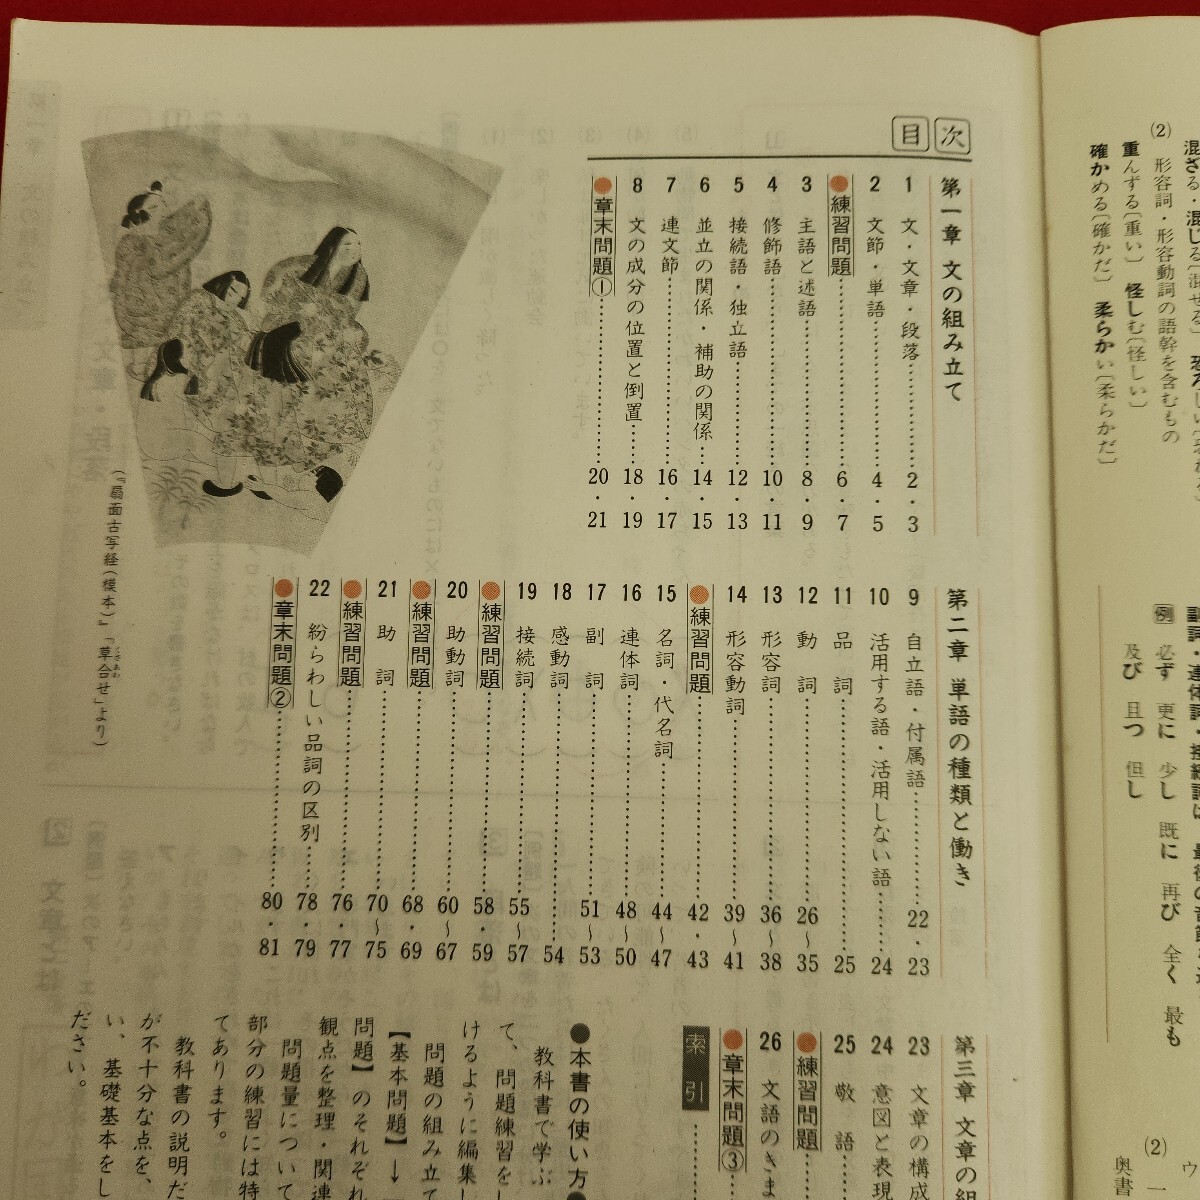 目次
第一章 文の組み立て
1 文・文章・段落 2・3
2 文節・単語 4・5
●練習問題 6・7
3 主語と述語 8・9
4 修飾語 10・11
5 接続語・独立語 12・13
6 並立の関係・補助の関係 14・15
7 連文節 16・17
8 文の成分の位置と倒置 18・19
●章末問題① 20・21
第二章 単語の種類と働き
9 自立語・付属語 22・23
10 活用する語・活用しない語 24
11 品詞 25
12 動詞 26〜35
13 形容詞 36〜38
14 形容動詞 39〜41
●練習問題 42・43
15 名詞・代名詞 44〜47
16 連体詞 48〜50
17 副詞 51〜53
18 感動詞 54
19 接続詞 55〜57
●練習問題 58・59
20 助動詞 60〜67
●練習問題 68・69
21 助詞 70〜75
●練習問題 76・77
22 紛らわしい品詞の区別 78・79
●章末問題② 80・81
第三章 文章の組
23 文章の構成
24 意図と表現
25 敬語
●練習問題
26 文語のきま
●章末問題③
索引
●本書の使い方●
教科書で学ぶ
て、問題練習をし
けるように編集し
問題の組み立て
【基本問題】→
問題】のそれぞれ
観点を整理・関連
問題量について
部分の練習には特
てあります。
教科書の説明だ
が不十分な点を、
い、基礎基本をし
ださい。
(『扇面古写経(模本)』「草合せ」より)
くさあわ
(2) 形容詞・形容動詞の語幹を含むもの
重んずる〔重い〕 怪しむ〔怪しい〕
確かめる〔確かだ〕 柔らかい〔柔らかだ〕
例 必ず 更に 少し 既に 再び 全く 最も
及び 且つ 但し
(2)
奥書